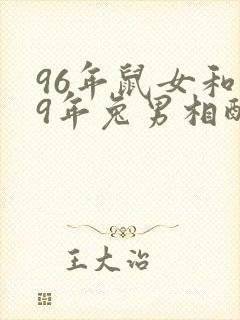 96年鼠女和
9年兔男相配
王大治